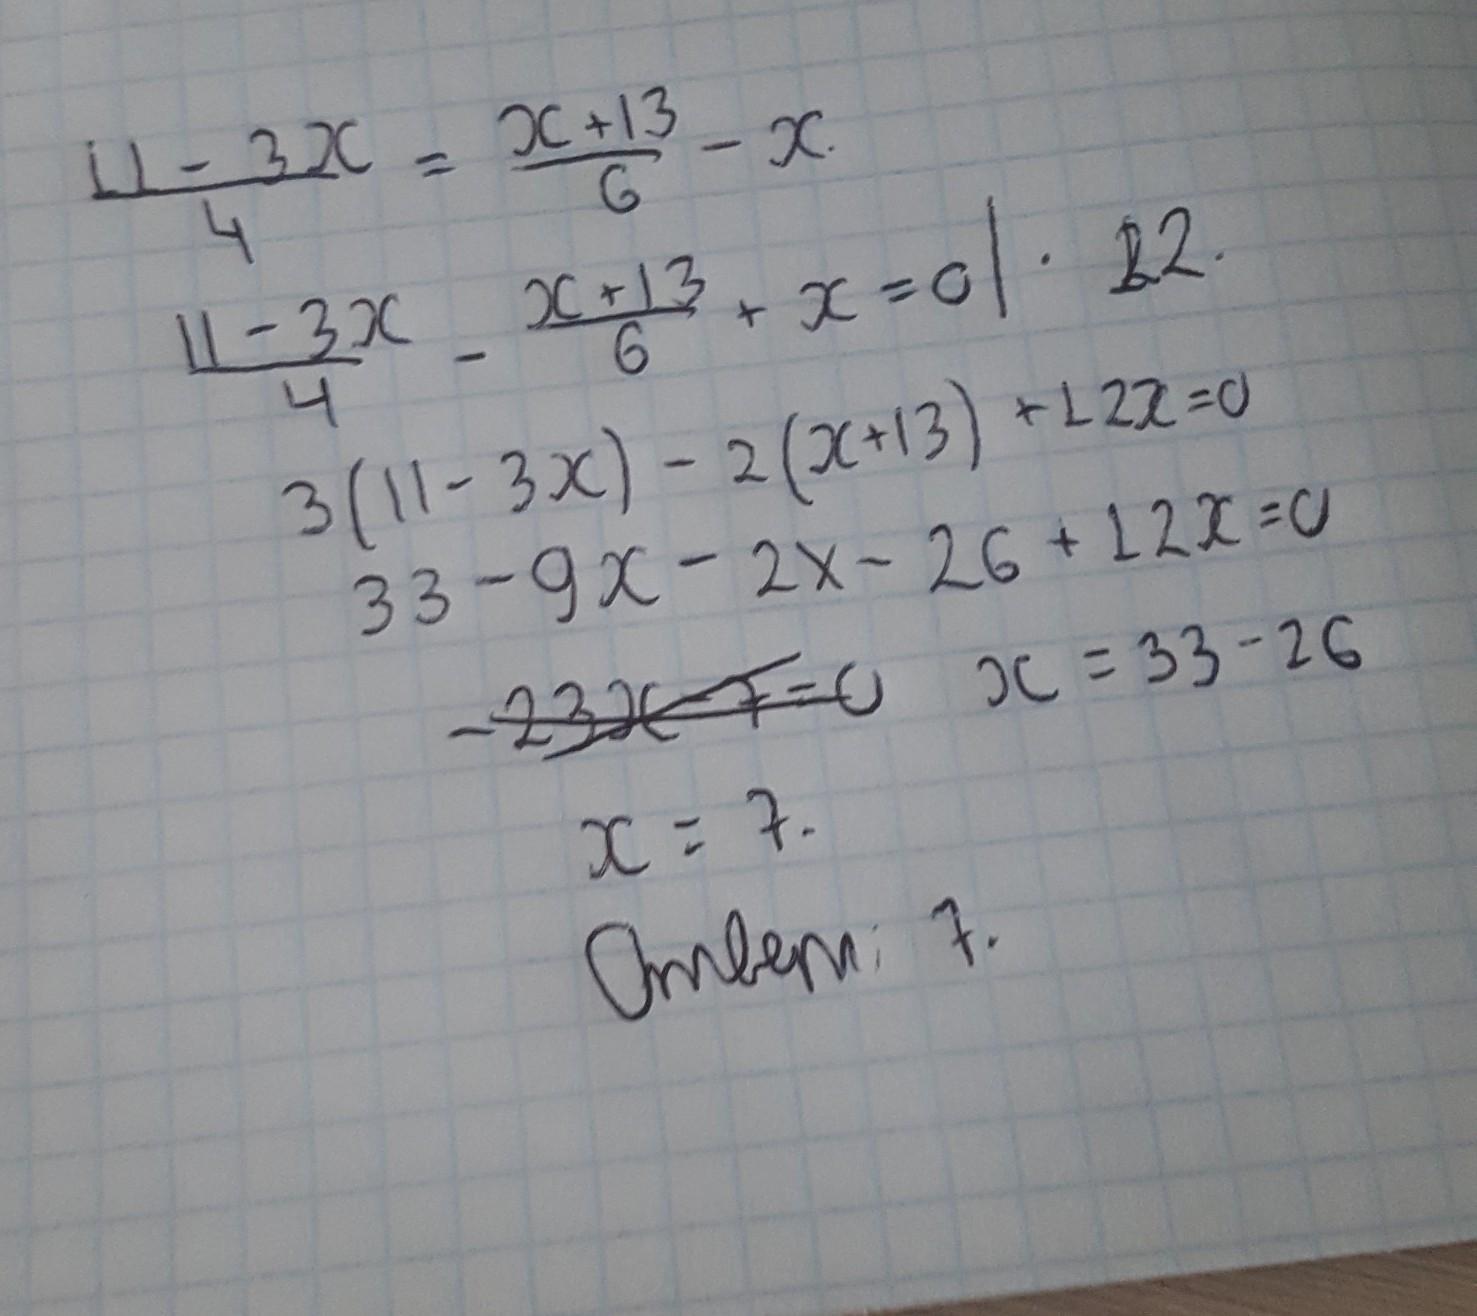 (11 - 3x)/4 = (x+13)/6 - x.
(11 - 3x)/4 - (x+13)/6 + x = 0 | · 12.
3(11 - 3x) - 2(x+13) + 12x = 0
33 - 9x - 2x - 26 + 12x = 0
-23x - 7 = 0 x = 33 - 26
x = 7.
Ответ: 7.